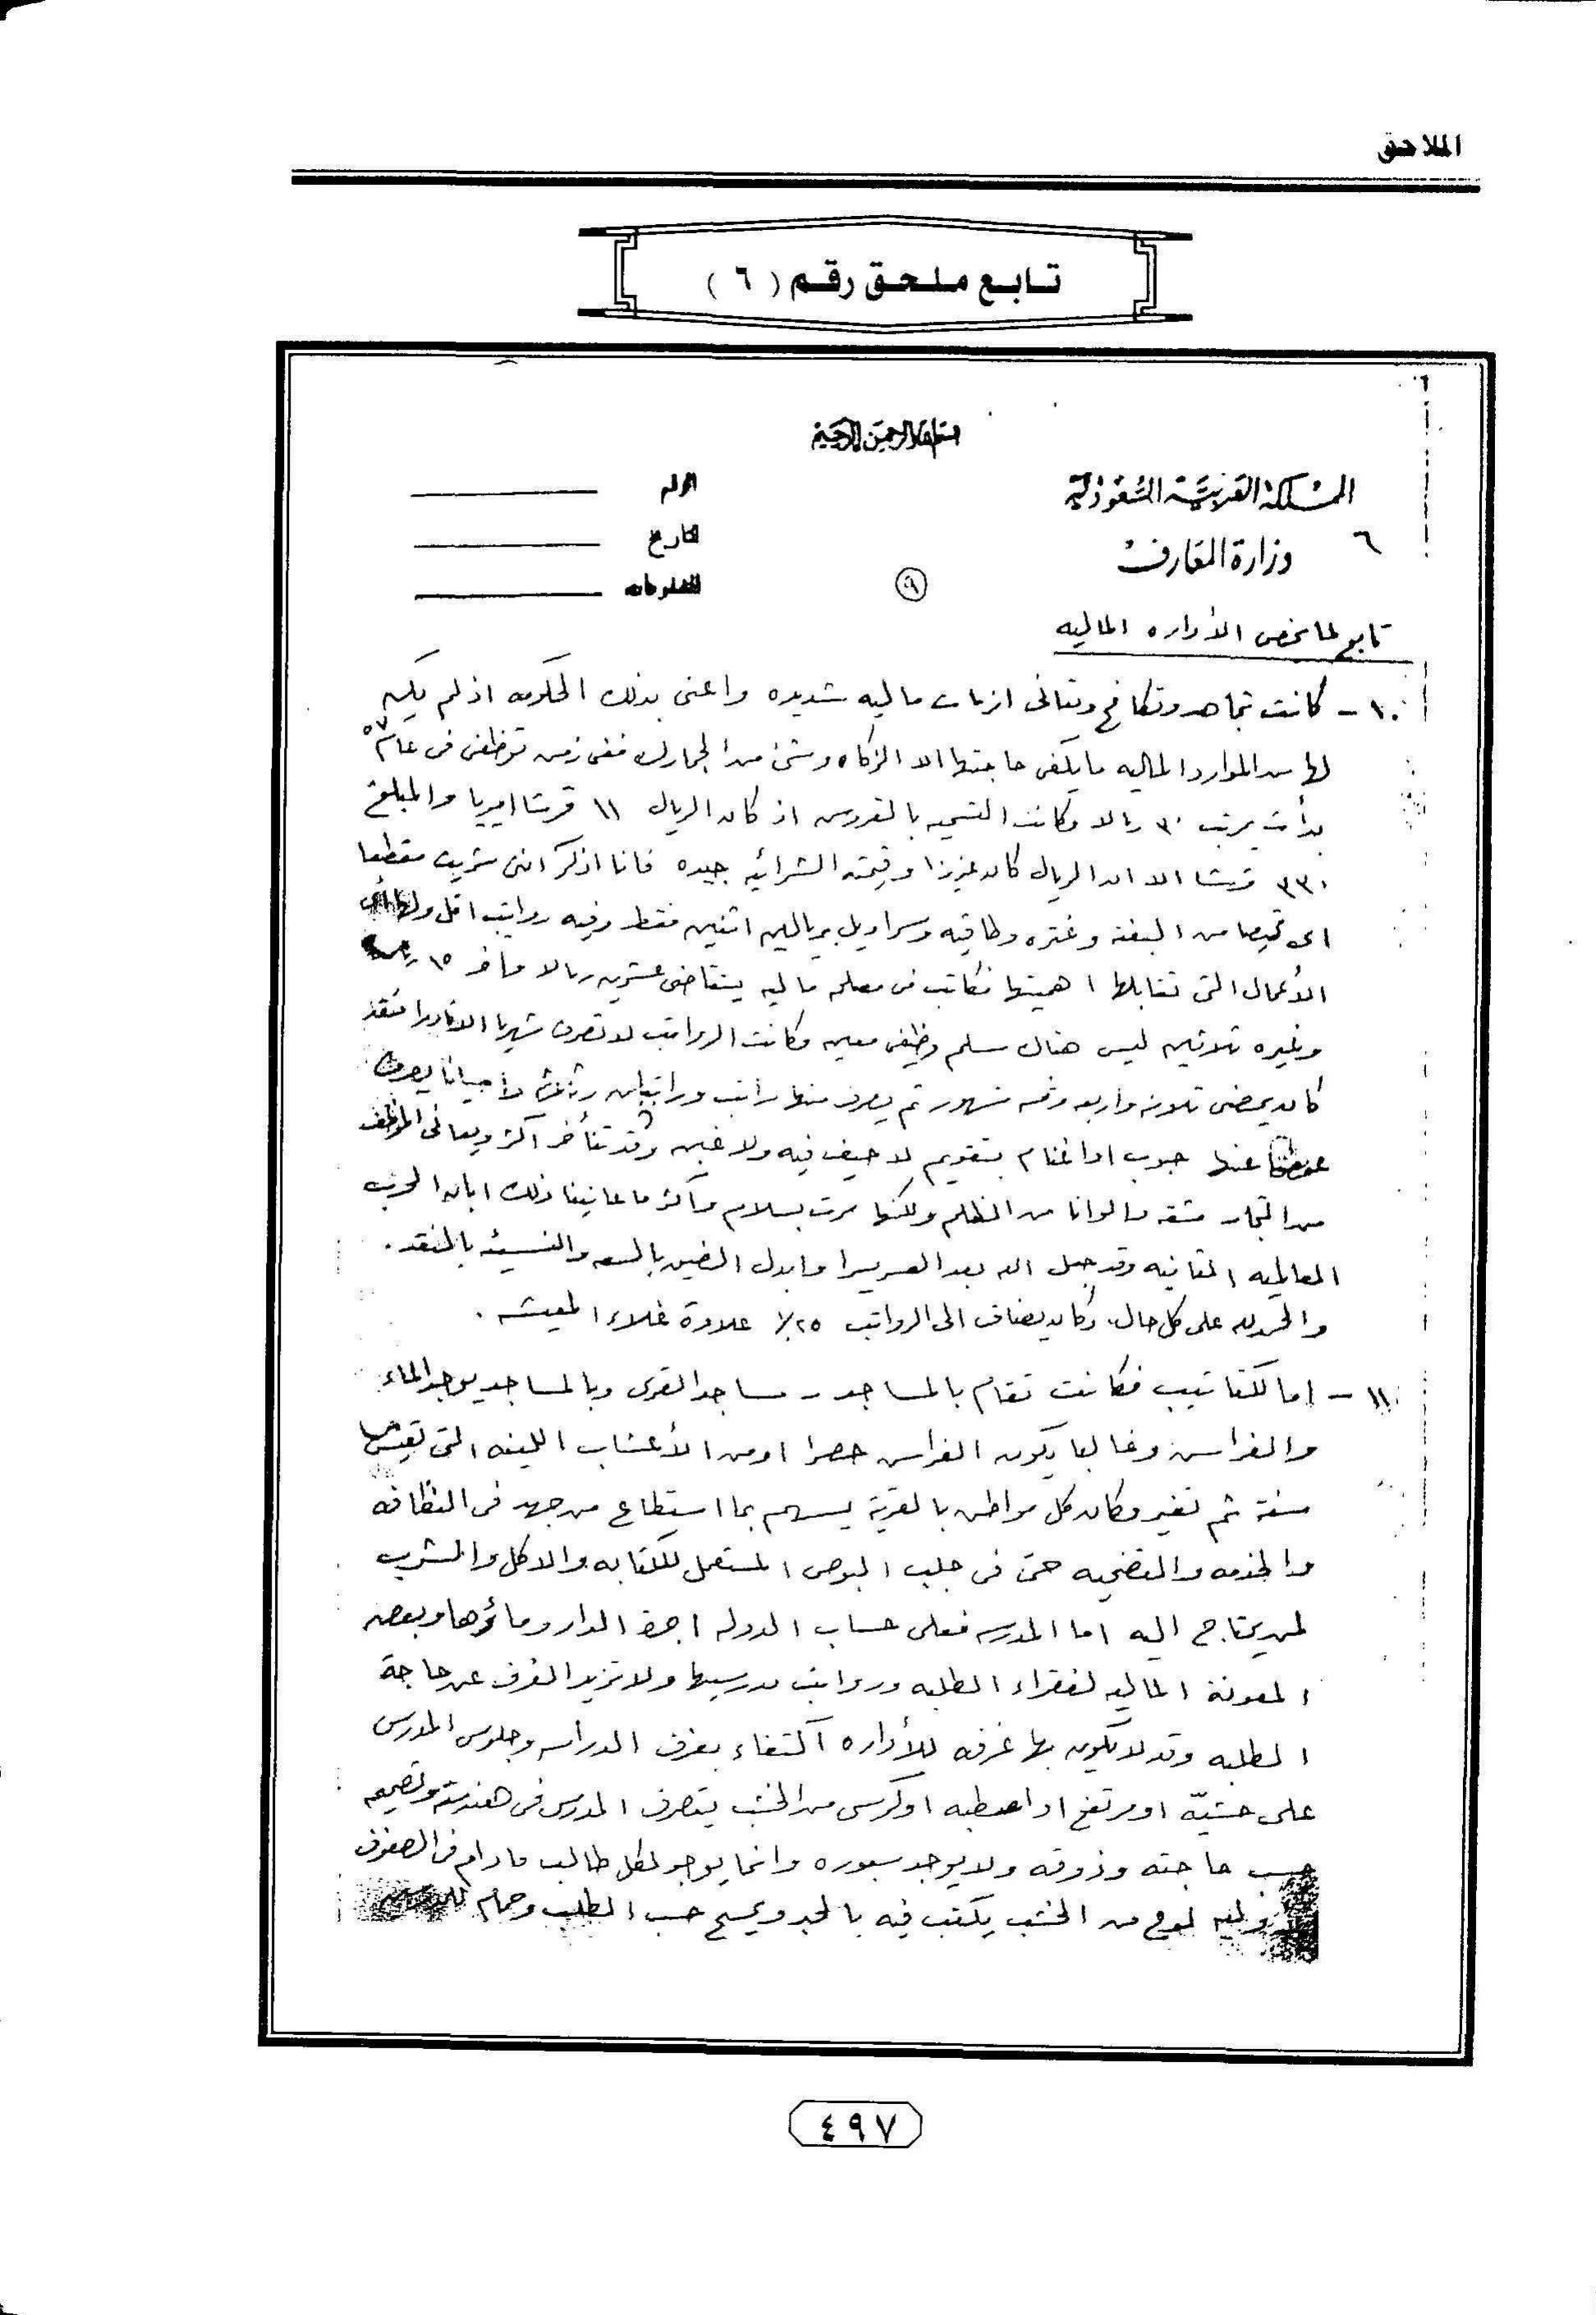 الملاحق
تابع ملحق رقم ( ٦ )
٦
بسم الله الرحمن الرحيم
المملكة العربية السعودية
الرقم
٦ وزارة المعارف
التاريخ
٩
المشفوعات
تابع لما يخص الأداره الماليه
١٠ - كانت تجاهد وتكافح وتعانى ازمات ماليه شديده واعنى بذلك الحكومه اذ لم يكن
لها من الموارد الماليه ما يكفى حاجتها الا الزكاه وشئ من الجمارك ففى زمن توظفى فى عام ٥٧
بدأت بمرتب ٣٠ ريالا وكانت التسميه بالقروش اذ كان الريال ١١ قرشا اميريا والمبلغ
٣٣٠ قرشا الا ان الريال كان عزيزا وقيمته الشرائيه جيده فانا اذكر اننى شريت مقطعا
اى قميصا من البفته وغتره وطاقيه وسراويل بريالين اثنين فقط وفيه رواتب اقل
الأعمال التى تقابلها اهميتها فكاتب فى مصلحه ماليه يتقاضى عشرين ريالا وآخر ١٥
وغيره ثلاثين ليس هناك سلم وظيفى معين وكانت الرواتب لا تصرف شهريا الا نادرا فقد
كان يمضى ثلاثه واربعه وخمسه شهور ثم يصرف منها راتب وراتبان واحيانا يصرف
عنها حبوب او اغنام بتقويم لا حيف فيه ولا غبن وقد تتأخر اكثر ويعانى الموظف
من التجار مشقه والوانا من الظلم ولكنها مرت بسلام واكثر ما عانينا ذلك ابان الحرب
العالميه الثانيه وقد جعل الله بعد العسر يسرا وابدل الضيق بالسعه والنسيئه بالنقد .
والحمد لله على كل حال . وكان يضاف الى الرواتب ٢٥٪ علاوة غلاء المعيشه .
١١ - اما الكتاتيب فكانت تقام بالمساجد - مساجد القرى وبالمساجد يوجد الماء
والفراش وغالبا يكون الفراش حصرا او من الأعشاب اللينه التى تعيش
سنة ثم تغير وكان كل مواطن بالقرية يسهم بما استطاع من جهد فى النظافه
والخدمه والتضحيه حتى فى جلب البوص المستعمل للكتابه والاكل والمشرب
لمن يحتاج اليه اما المدرسه فعلى حساب الدوله اجرة الدار وماؤها وبعض
المعونة الماليه لفقراء الطلبه ورواتب مدرسيها ولا تزيد الغرف عن حاجة
الطلبه وقد لا يكون بها غرفه للأداره اكتفاء بغرف الدراسه وجلوس المدرس
على حشيّة او مرتفع او مصطبه او كرسى من الخشب يتصرف المدرس فى هندسته وتصميمه
حسب حاجته وذوقه ولا يوجد سبوره وانما يوجد لكل طالب مادام فى الصفوف
الأوليه لوح من الخشب يكتب فيه بالحبر ويمسح حسب الطلب وحمام
٤٩٧